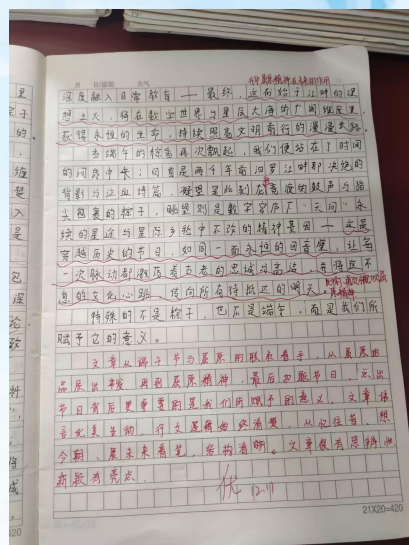 月 日/星期 天气
深度融入日常教育——最终，这份始于江畔的理
想之火，将在数字世界与星辰大海的广阔维度里
获得永恒的生命，持续照亮文明前行的漫漫长路。
当端午的粽香再次飘起，我们便站在了时间
的问答中央：回首是两千年前汨罗江畔那决绝的
背影与江血诗篇，凝望是此刻龙舟竞渡的鼓声与指
尖包裹的粽子，眺望则是数字穹庐下"天问"永
续的星途与星际乡愁中不改的精神基因——这是
穿越历史的节日，如同一面永恒的回音壁，让每
一次脉动都激荡着古老的忠诚与高洁，并将这不
息的文化心跳，传向所有待抵达的明天。
特殊的不是粽子，也不是端午，而是我们所
赋予它的意义。
文章从端午节与屈原的联系着手，从屈原的
品质出发，再到屈原精神，最后扣题节日，点出
节日背后更重要的是我们所赋予的意义。文章语
言优美生动，行文逻辑始终清楚，从忆往昔、想
今朝、展未来着笔，结构者明。文章很有思辨性
新颖有亮点。
优 12.11
21X20=420